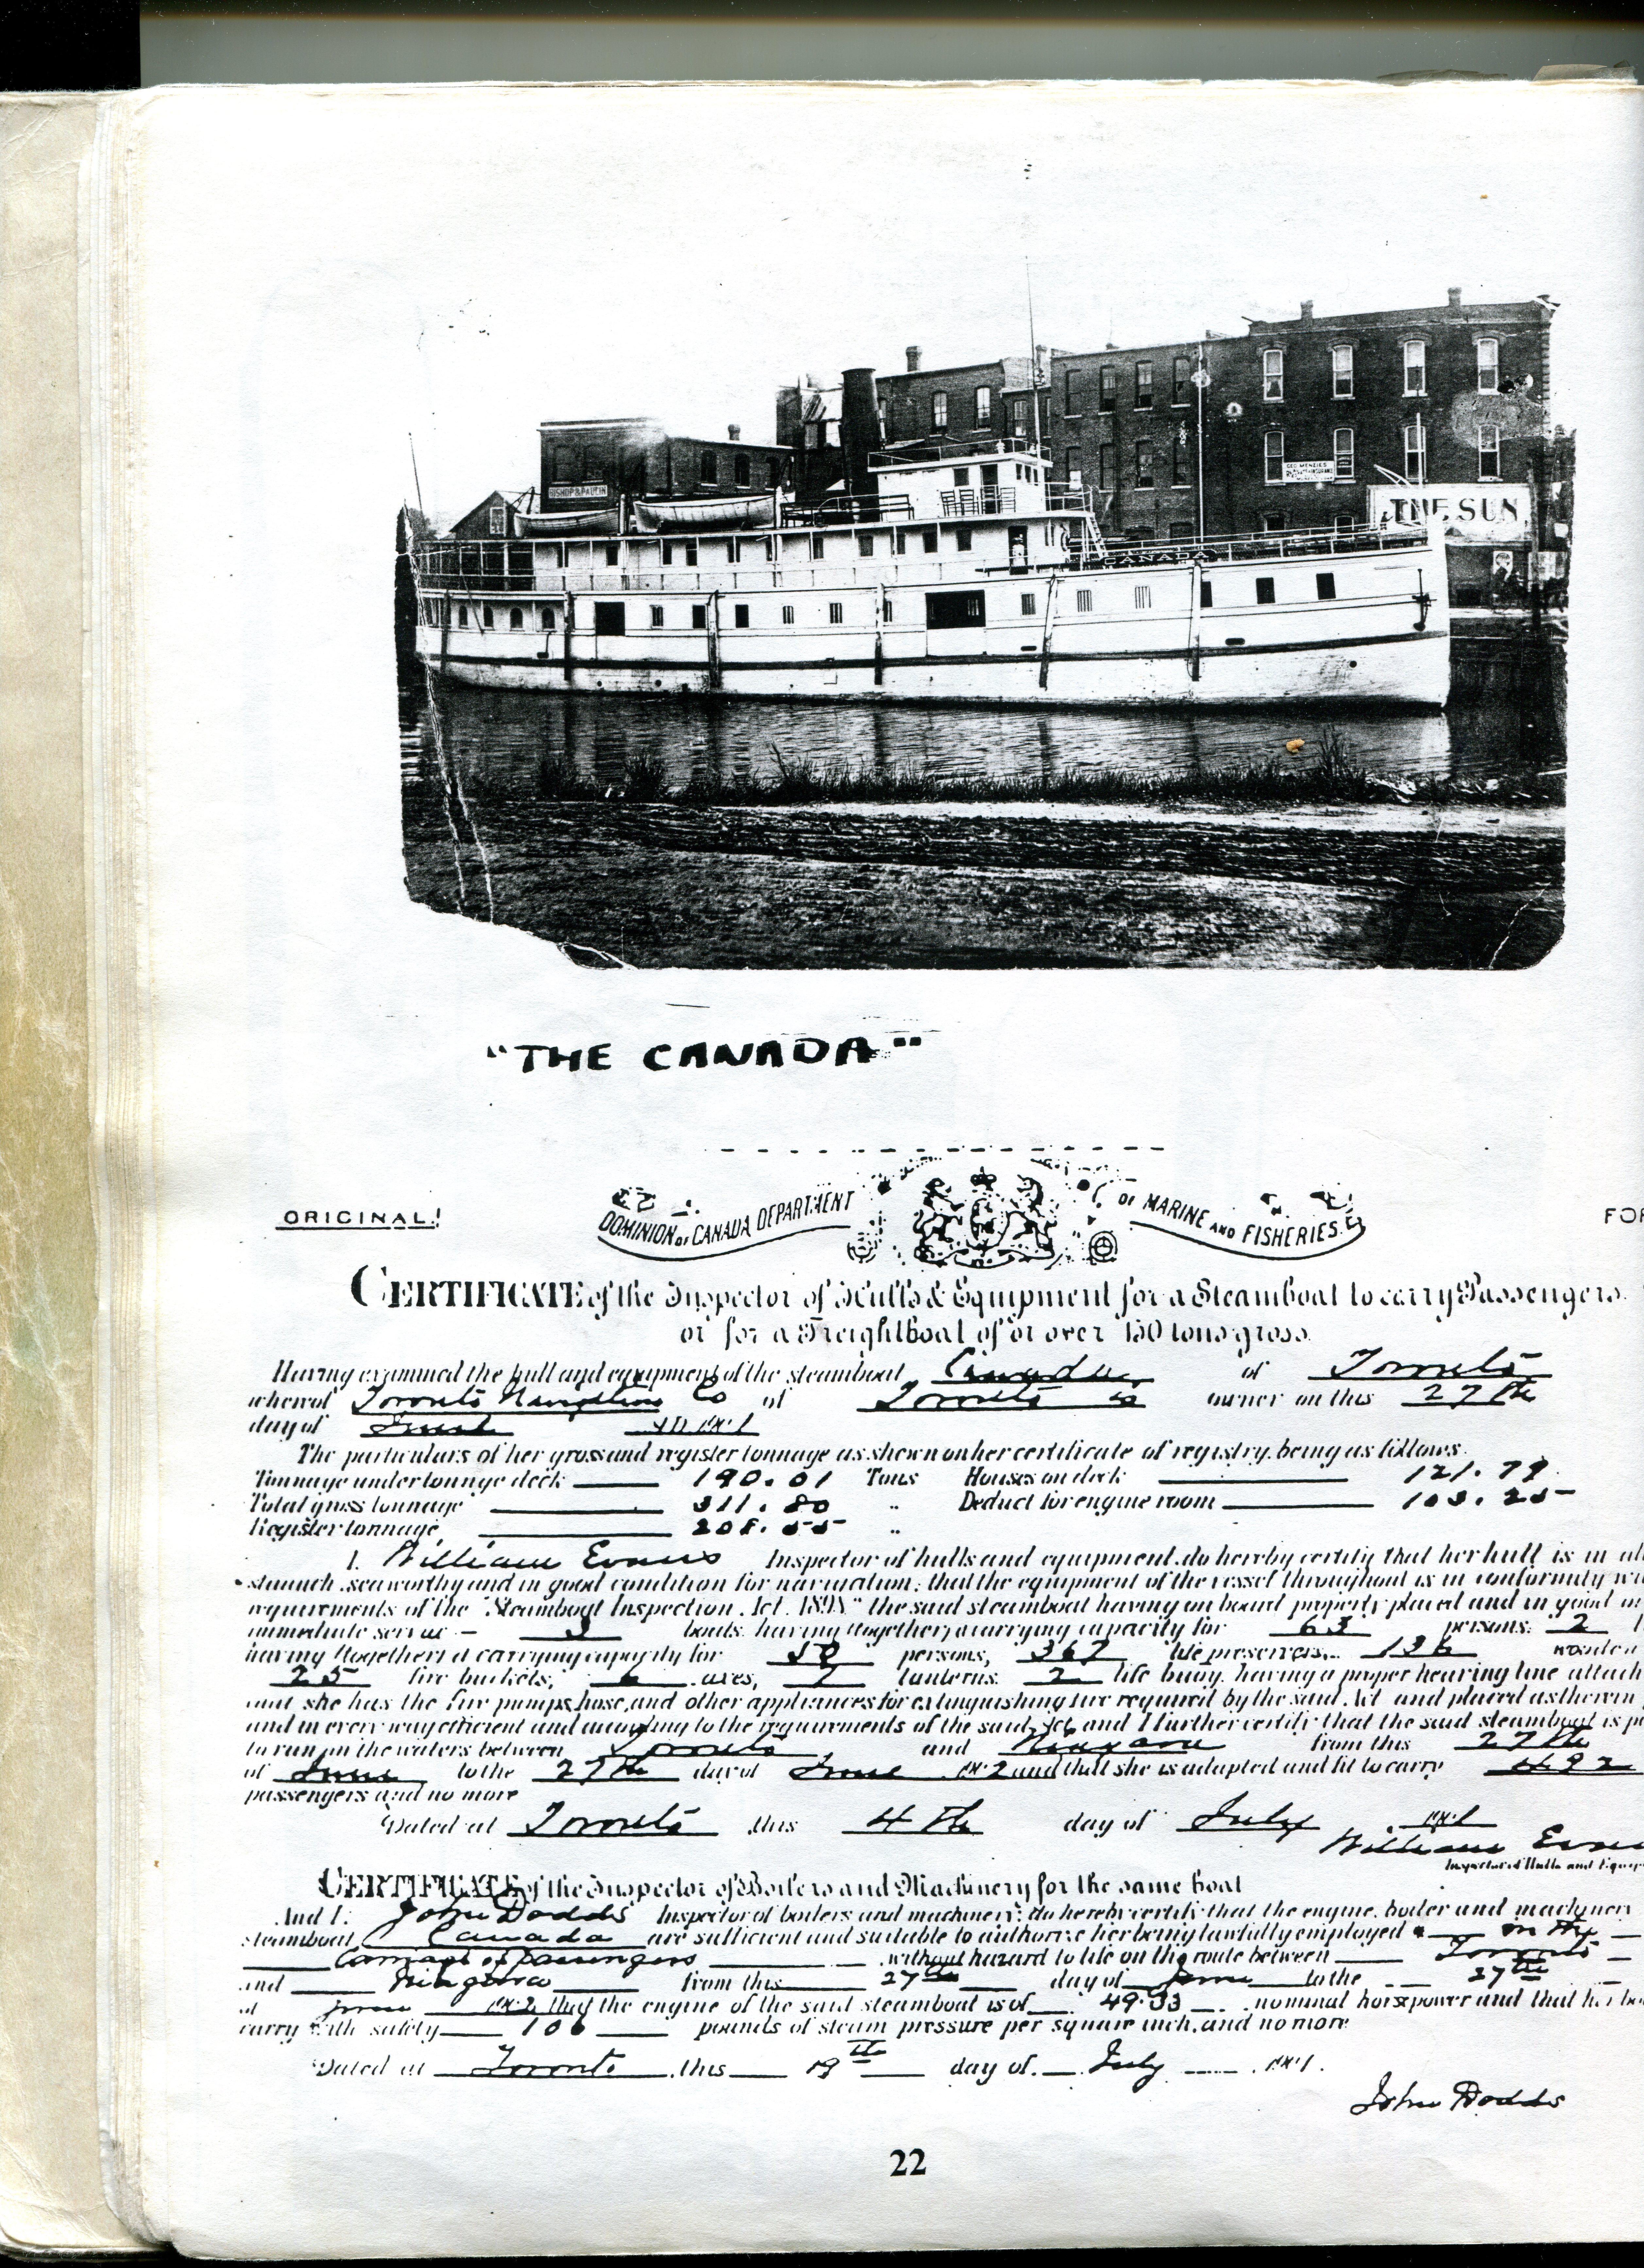 BISHOP & PAULIN
GEO MENZIES
INSURANCE
THE SUN
CANADA
"THE CANADA"
ORIGINAL!
DOMINION of CANADA DEPARTMENT OF MARINE AND FISHERIES.
FOR
CERTIFICATE of the Inspector of Hulls & Equipment for a Steamboat to carry Passengers
or for a Freightboat of or over 150 tons gross.
Having examined the hull and equipment of the steamboat Canada of Toronto
whereof Toronto Navigation Co of Toronto is owner on this 27th
day of June
The particulars of her gross and register tonnage as shown on her certificate of registry, being as follows.
Tonnage under tonnage deck 190.01 Tons Houses on deck 121.79
Total gross tonnage 311.80 " Deduct for engine room 103.25
Register tonnage 208.55 "
I, William Evans Inspector of hulls and equipment, do hereby certify that her hull is in all
staunch, seaworthy and in good condition for navigation; that the equipment of the vessel throughout is in conformity wi
requirements of the "Steamboat Inspection Act, 1898" the said steamboat having on board properly placed and in good
immediate service 3 boats, having together, a carrying capacity for 63 persons, 2
having (together) a carrying capacity for 58 persons, 367 life preservers, 136 wooden
25 fire buckets, 6 axes, 7 lanterns, 2 life buoy, having a proper heaving line attach
and she has the fire pumps, hose, and other appliances for extinguishing fire required by the said Act and placed as therein
and in every way efficient and according to the requirements of the said Act, and I further certify that the said steamboat is p
to run on the waters between Toronto and Niagara from this 27th
of June to the 27th day of June and that she is adapted and fit to carry 492
passengers and no more
Dated at Toronto this 4th day of July
William Evans
Inspector of Hulls and Equip
CERTIFICATE of the Inspector of Boilers and Machinery for the same boat
And I, John Dodds Inspector of boilers and machinery, do hereby certify that the engine, boiler and machinery
steamboat Canada are sufficient and suitable to authorize her being lawfully employed in the
Carriage of passengers without hazard to life on the route between Toronto
and Niagara from this 27th day of June to the 27th
of June that the engine of the said steamboat is of 49.33 nominal horsepower and that her bo
carry with safety 106 pounds of steam pressure per square inch, and no more
Dated at Toronto this 19th day of July
John Dodds
22